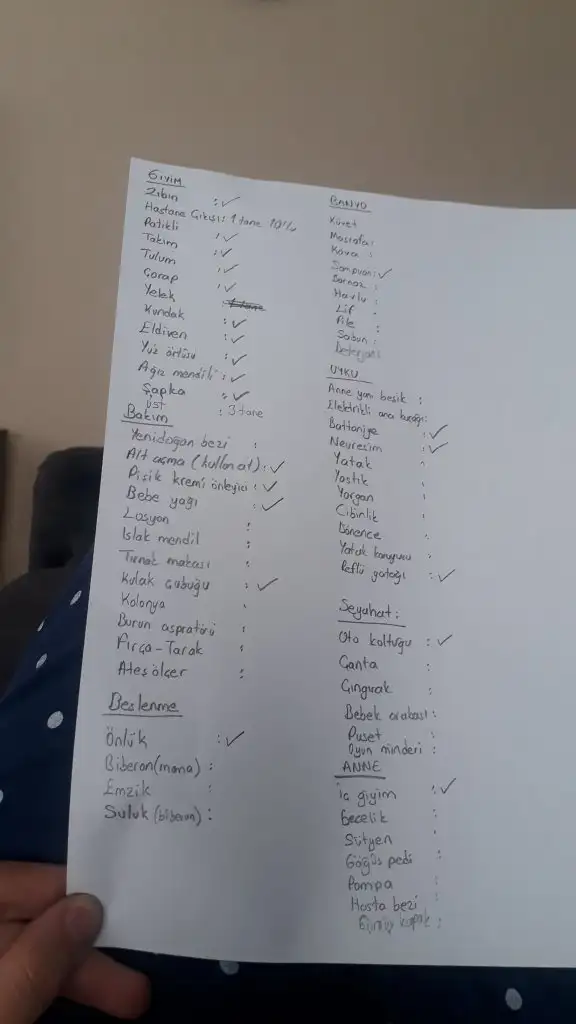 GİYİM
Zıbın : ✓
Hastane Çıkışı : 1 tane 10%
Patikli : ✓
Takım : ✓
Tulum : ✓
Çorap : ✓
Yelek
Kundak : ✓
Eldiven : ✓
Yüz örtüsü : ✓
Ağız mendili : ✓
Şapka : ✓
üst : 3 tane
Bakım
Yenidoğan bezi :
Alt açma (kullan at) : ✓
Pişik kremi önleyici : ✓
Bebe yağı : ✓
Losyon :
Islak mendil :
Tırnak makası :
Kulak çubuğu : ✓
Kolonya :
Burun aspratörü :
Fırça-Tarak :
Ateş ölçer :
Beslenme
Önlük : ✓
Biberon(mama) :
Emzik :
Suluk (biberon) :
BANYO
Küvet
Maşrafa :
Kova :
Şampuan : ✓
Bornoz :
Havlu :
Lif :
File :
Sabun :
Deterjanı
UYKU
Anne yanı beşik :
Elektrikli ana kucağı :
Battaniye : ✓
Nevresim : ✓
Yatak :
Yastık :
Yorgan :
Cibinlik :
Dönence :
Yatak koruyucu :
Reflü yatağı : ✓
Seyahat :
Oto koltuğu : ✓
Çanta :
Çıngırak :
Bebek arabası :
Puset :
Oyun minderi :
ANNE
İç giyim : ✓
Gecelik :
Sütyen :
Göğüs pedi :
Pompa :
Hasta bezi :